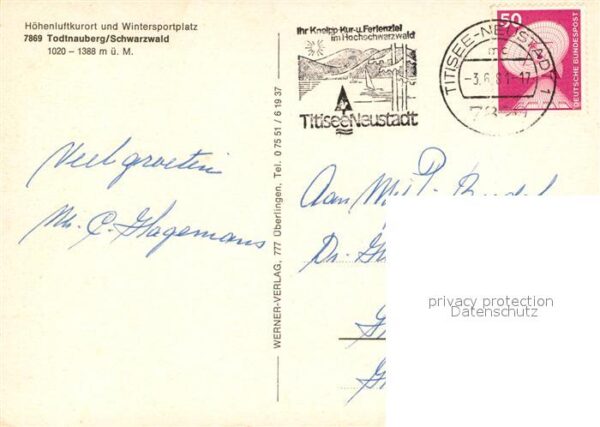 Höhenluftkurort und Wintersportplatz
7869 Todtnauberg/Schwarzwald
1020 – 1388 m ü. M.
Ihr Kneipp-Kur-u. Ferienziel
im Hochschwarzwald
TitiseeNeustadt
TITISEE-NEUSTADT 1
mc
-3.6.81-17
50
DEUTSCHE BUNDESPOST
Veel groeten
Mr. C. Hagemans
WERNER-VERLAG, 777 Überlingen, Tel. 0 75 51 / 6 19 37
Aan
Dr.
privacy protection
Datenschutz